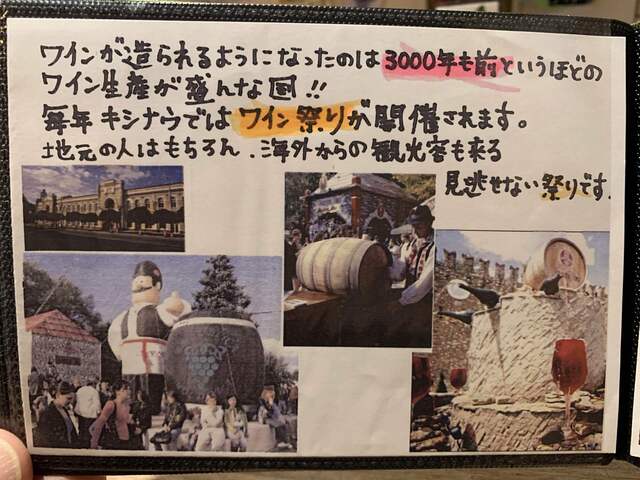 ワインが造られるようになったのは3000年も前というほどの
ワイン生産が盛んな国!!
毎年キシナウではワイン祭りが開催されます。
地元の人はもちろん、海外からの観光客も来る
見逃せない祭りです。